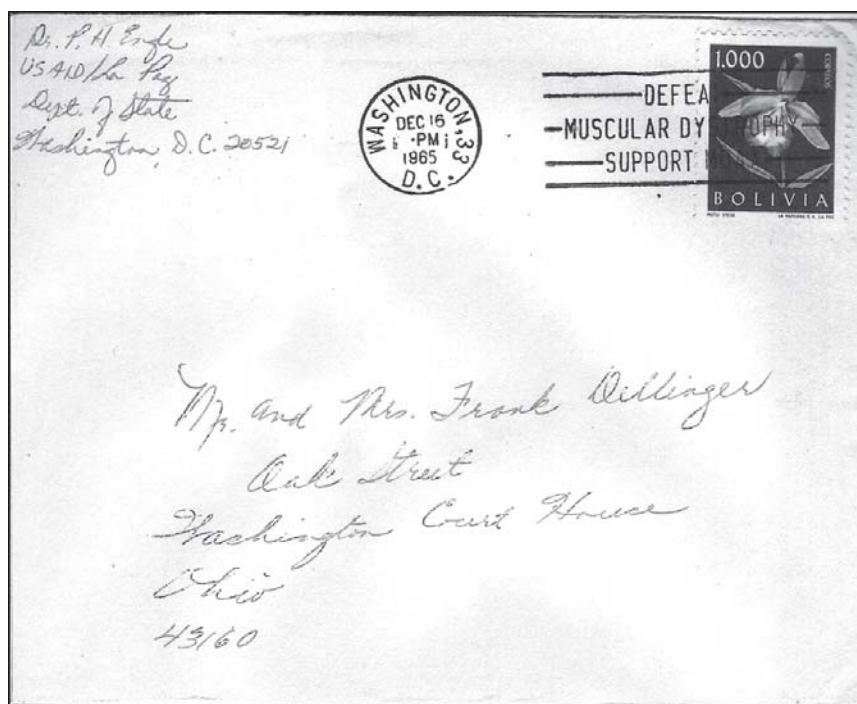 Dr. P. H. Engle
USAID/La Paz
Dept. of State
Washington, D.C. 20521
WASHINGTON, 33
DEC 16
PM
1965
D.C.
DEFEA
MUSCULAR DYSTROPHY
SUPPORT
1.000
CORREOS
BOLIVIA
Mr. and Mrs. Frank Dellinger
Oak Street
Washington Court House
Ohio
43160